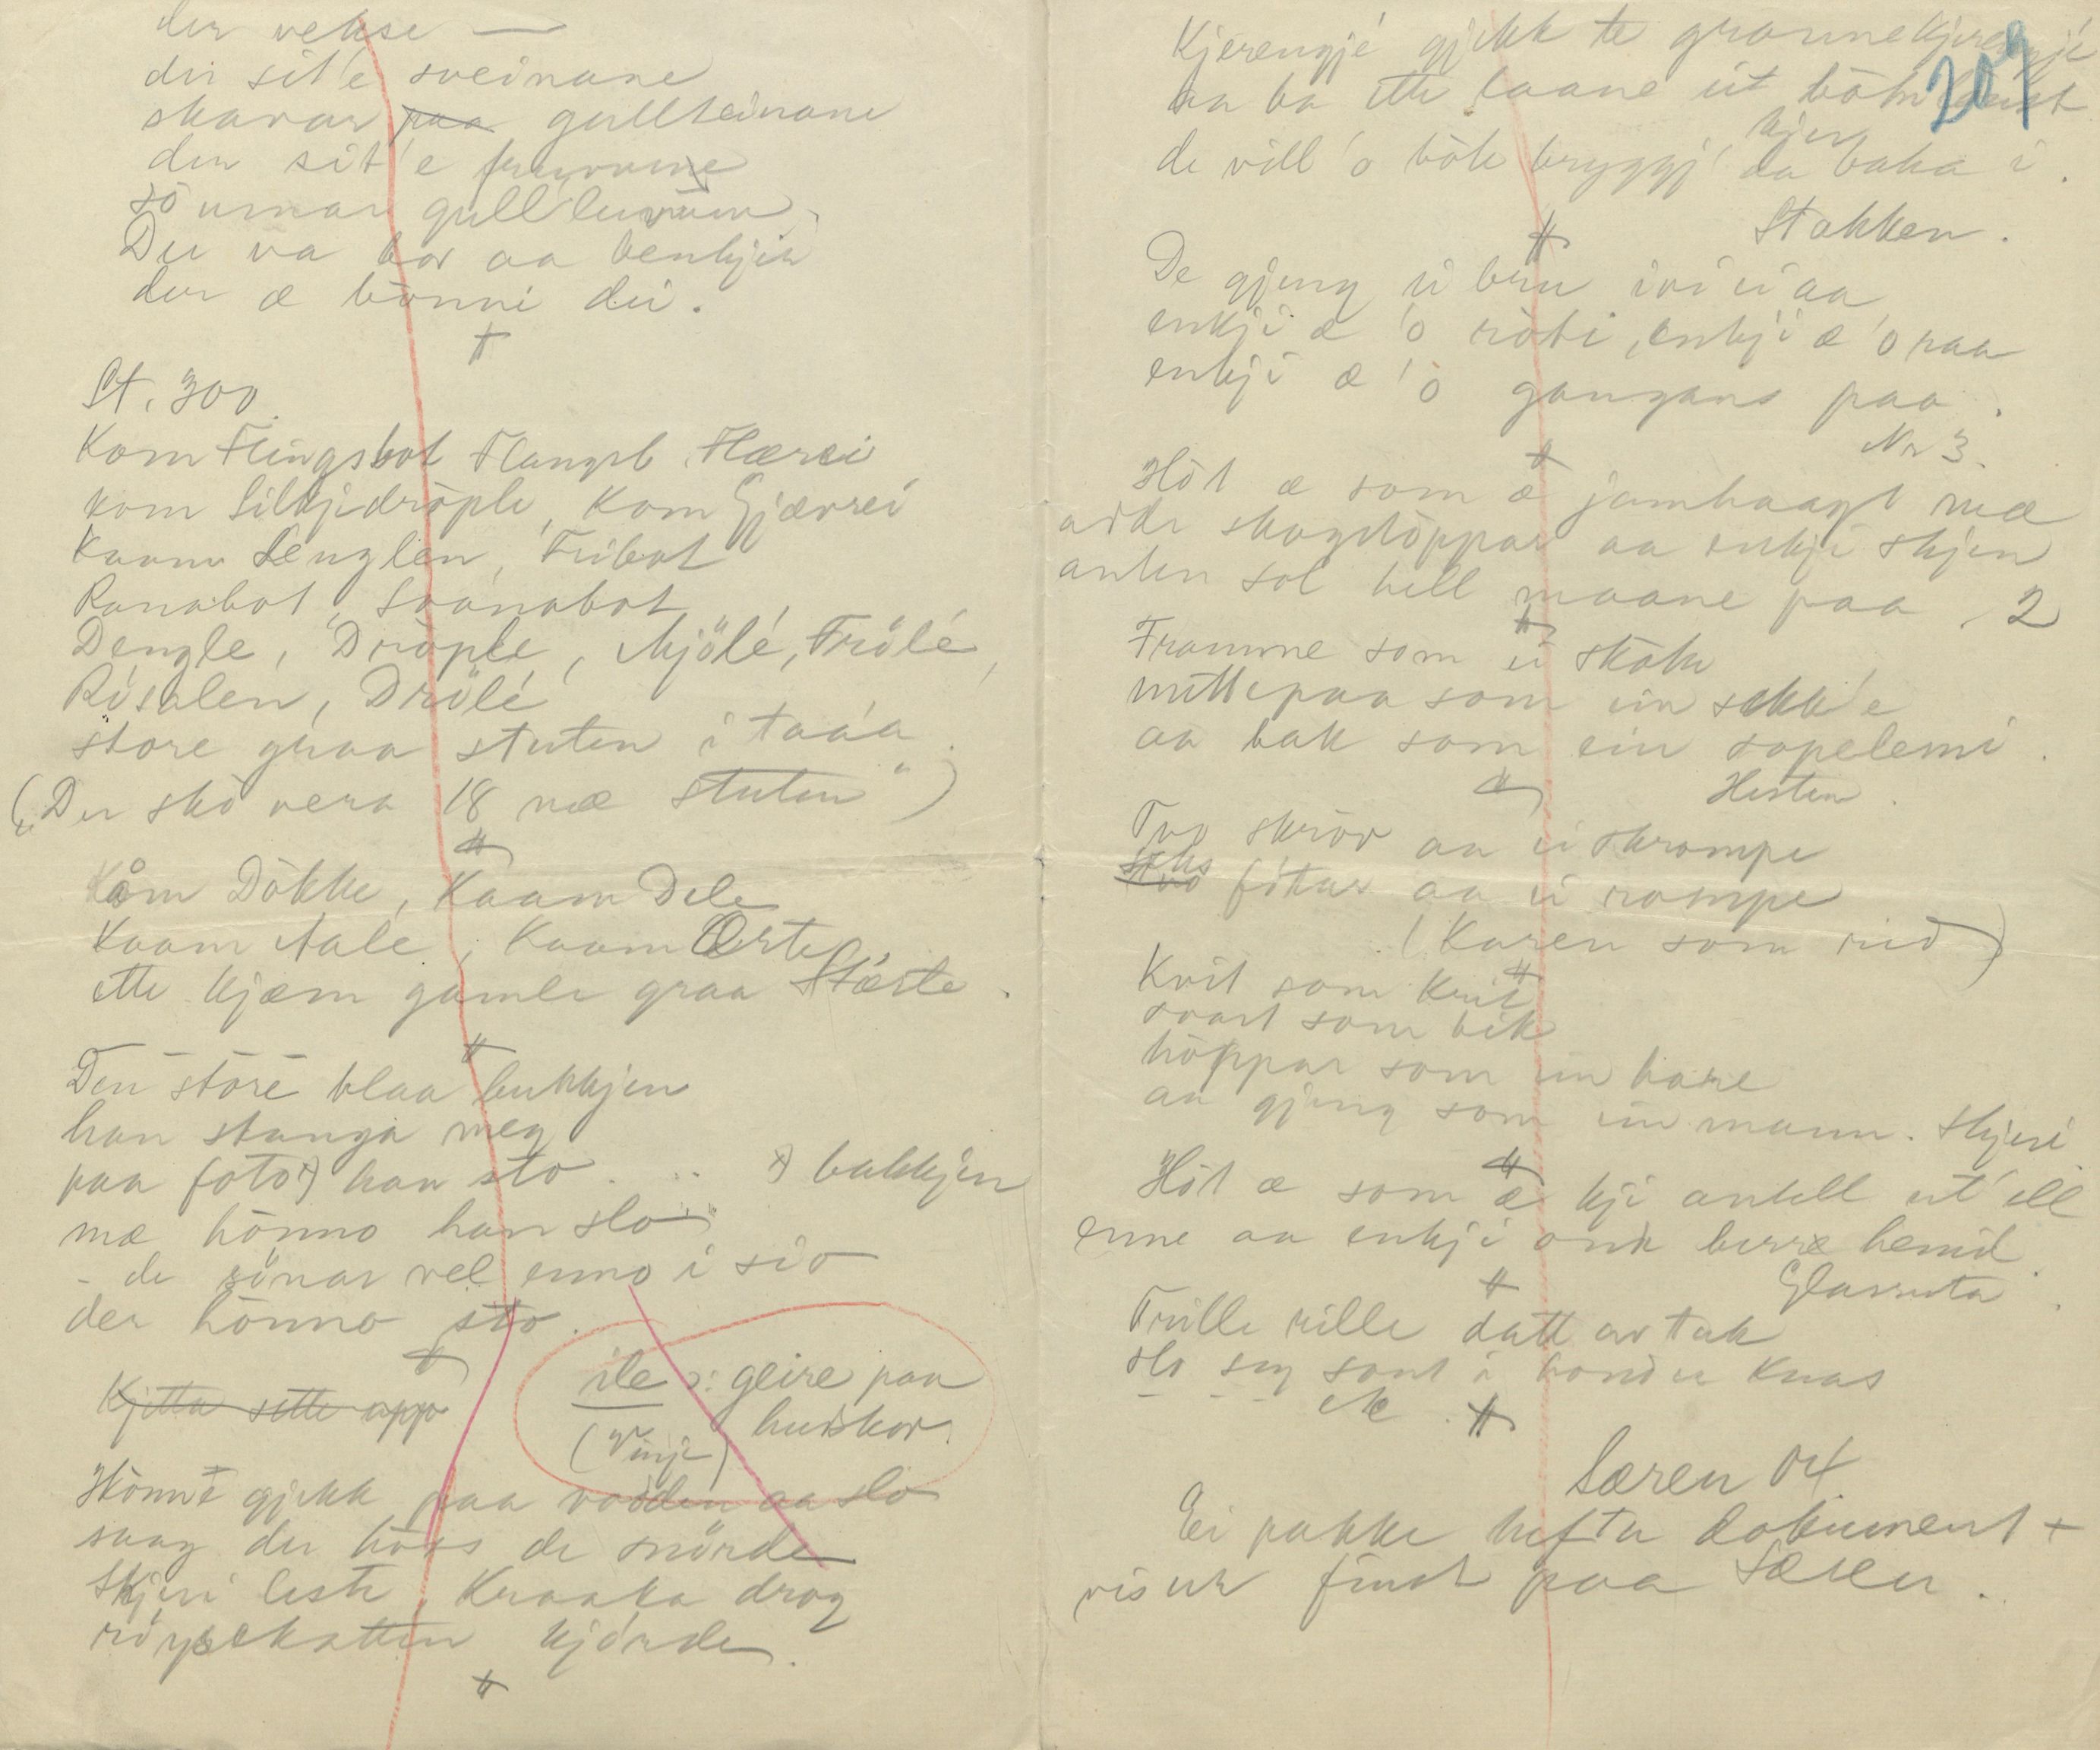 der vekse —
der sit'e sveinane
skavar paa gullteinane
der sit'e fruvune
saumar gull
Der va bor aa benkjir
der æ bönni dei.
St. 300.
Kom Flingsbot Flangsb. Flærei
kom Silkjedröple, Kom Gjævrei
Kaam Lenglen, Fribot
Ranabot, Svanabot
Dengle, Dröple, Mjölé, Frölé,
Risalen, Drölé
store graa stuten i taaa.
("Der sko vera 18 mæ stuten")
Kåm Dökke, Kaam Dele
Kaam Aale, Kaam Ærte
ette kjæm gamle graa Stærte.
Den store blaa bukkjen
han stanga meg
paa foto x) han sto . . . x) bakkjen
mæ hönno han slo
- de sönar vel enno i sio
der hönno sto.
Kjetta sette upp
ile ɔ: geire paa
hudskor.
(Vinje)
Hönne gjekk paa vodden aa slo
saag der höss de snörde
Skjeri leste, Kraaka drog
röysekatten kjörde.
209
Kjerengjé gjekk te grannekjerengjé
aa ba ette laane eit
de vill 'o böte bryggj' kjer da baka i.
Stakken.
De gjeng ei bru ivi ei aa
enkji æ 'o röti, enkji æ 'o raa
enkji æ 'o gangans paa.
Nr 3.
Höt æ som æ jamhaagt mæ
adde skogtöppar aa enkji skjin
anten sol hell maane paa. 2
Framme som ei skåke
mittepaa som ein sekk'e
aa bak som ein sopelemi.
Hesten.
Tvo skröv aa ei skrompe
tvo seks fötar aa ei rompe
(Karen som rid)
Kvit som krit
svart som bik
höppar som ein hare
aa gjeng som ein mann. Skjeri
Höt æ som æ kji antell ut'ell
enne aa enkji onde berre hemil.
Glasruta.
Trille rille datt av tak
slo seg sont i hondre knas
- - - etc.
Særen 04
Ei pakke hefta dokument +
viser finst paa Særen.